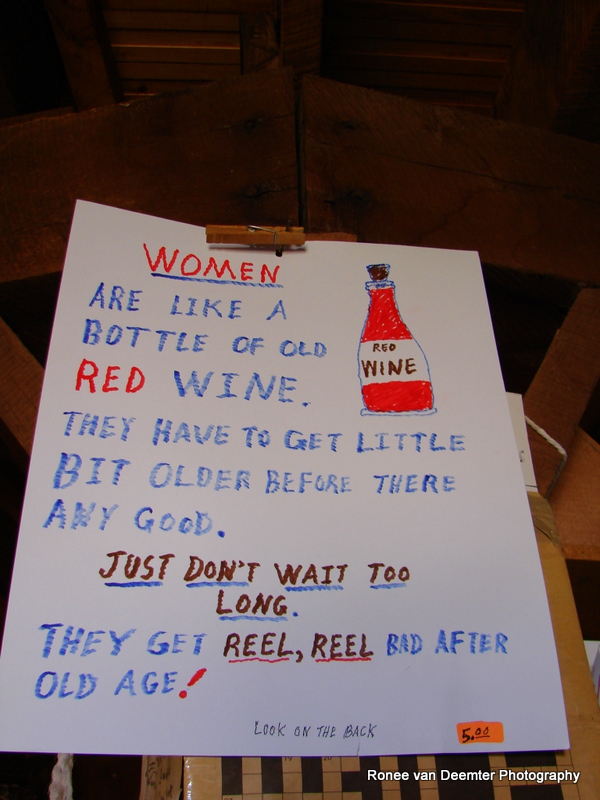 WOMEN
ARE LIKE A
BOTTLE OF OLD
RED WINE.
RED
WINE
THEY HAVE TO GET LITTLE
BIT OLDER BEFORE THERE
ANY GOOD.
JUST DON'T WAIT TOO
LONG.
THEY GET REEL, REEL BAD AFTER
OLD AGE!
LOOK ON THE BACK
5.00
Ronee van Deemter Photography